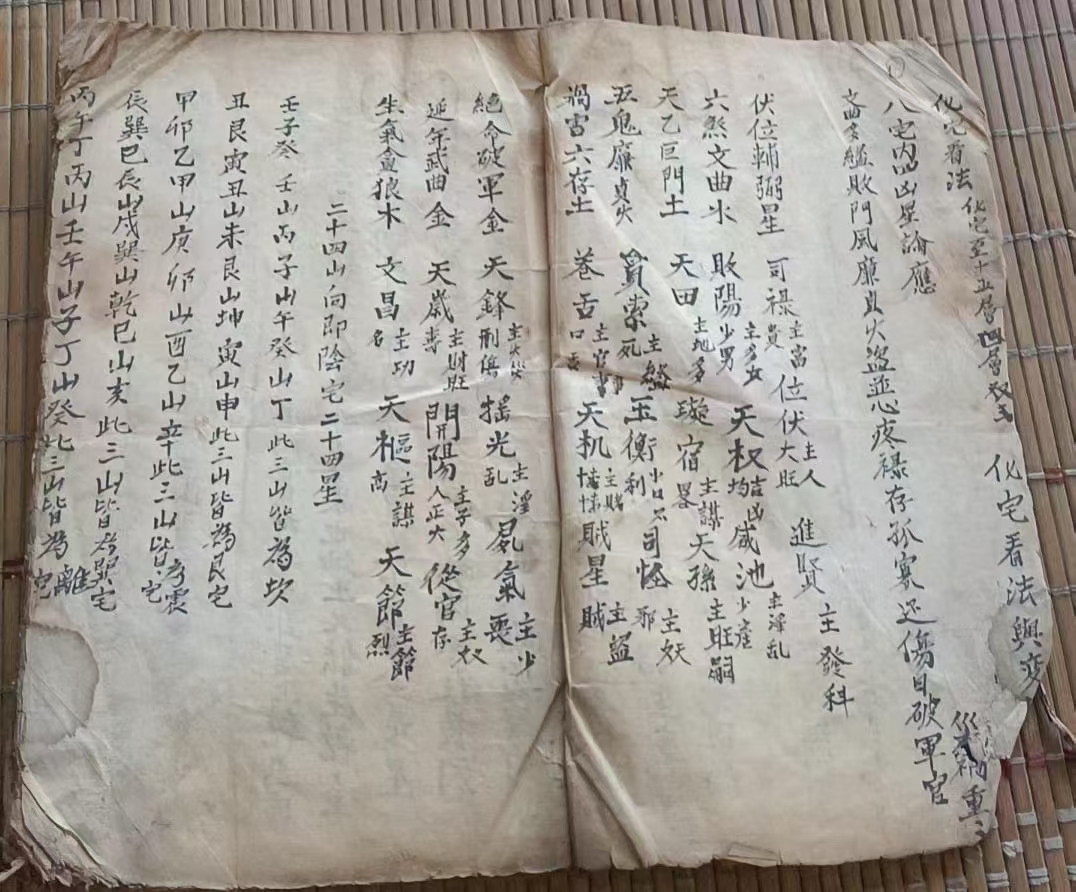 化宅看法與变
化宅看法 化宅至十五層四層双五
八宅内四凶星論應 災禍重
文曲 敗門風廉貞火盜並心疼禄存孤寡还傷目破軍官
伏位輔弼星 司禄主富貴 位伏主人大旺 進賢主發科
六煞文曲水 敗陽主多女少男 天权吉凶均 咸池主淫乱少産
天乙巨門土 天田主地多 璇宿主謀畧 天孫主旺嗣
五鬼廉貞火 貫索主 死 玉衡 小口不利 司怪主妖邪
禍害六存土 卷舌主官事口舌 天机主賭 賊星主盜賊
絕命破軍金 天鋒主火災刑傷 摇光主淫乱 屍氣主少喪
延年武曲金 天歲主財旺壽 開陽主子多人正大 從官主奴存
生氣貪狼木 文昌主功名 天樞主謀高 天節主節烈
二十四山向即陰宅二十四星
壬子癸 壬山丙子山午癸山丁此三山皆為坎
丑艮寅丑山未艮山坤寅山申此三山皆為艮宅
甲卯乙甲山庚卯山酉乙山辛此三山皆為震宅
辰巽巳辰山戌巽山乾巳山亥此三山皆為巽宅
丙午丁丙山壬午山子丁山癸此三山皆為離宅